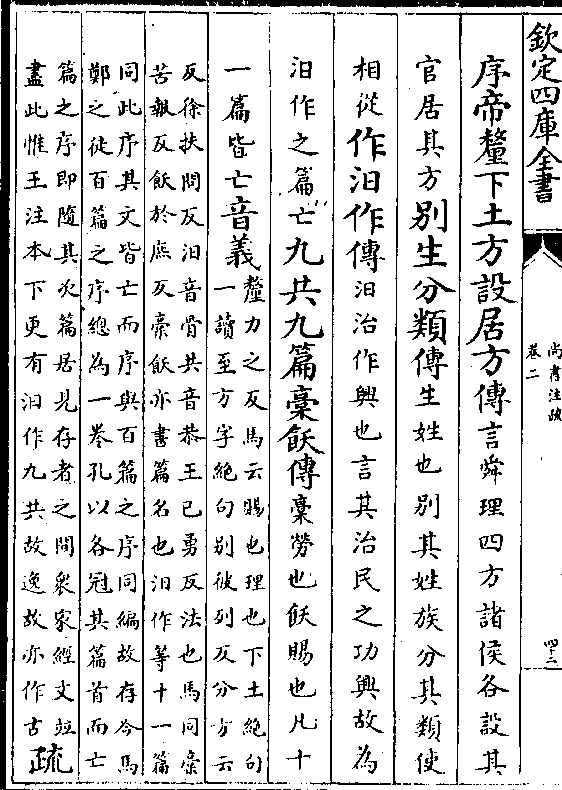 欽定四庫全書
尚書注疏
卷二
四十二
序帝釐下土方設居方傳言舜理四方諸侯各設其
官居其方別生分類傳生姓也別其姓族分其類使
相從作汨作傳汨治作興也言其治民之功興故為
汨作之篇亡九共九篇槀飫傳槀勞也飫賜也凡十
一篇皆亡音義
釐力之反馬云賜也理也下土絶句
一讀至方字絶句別彼列反分方云
反徐扶問反汨音骨共音恭王己勇反法也馬同槀
苦報反飫於庶反槀飫亦書篇名也汨作等十一篇
同此序其文皆亡而序與百篇之序同編故存今馬
鄭之徒百篇之序總為一卷孔以各冠其篇首而亡
篇之序即隨其次篇居見存者之間衆家經文竝
盡此惟王注本下更有汨作九共故逸故亦作古
疏